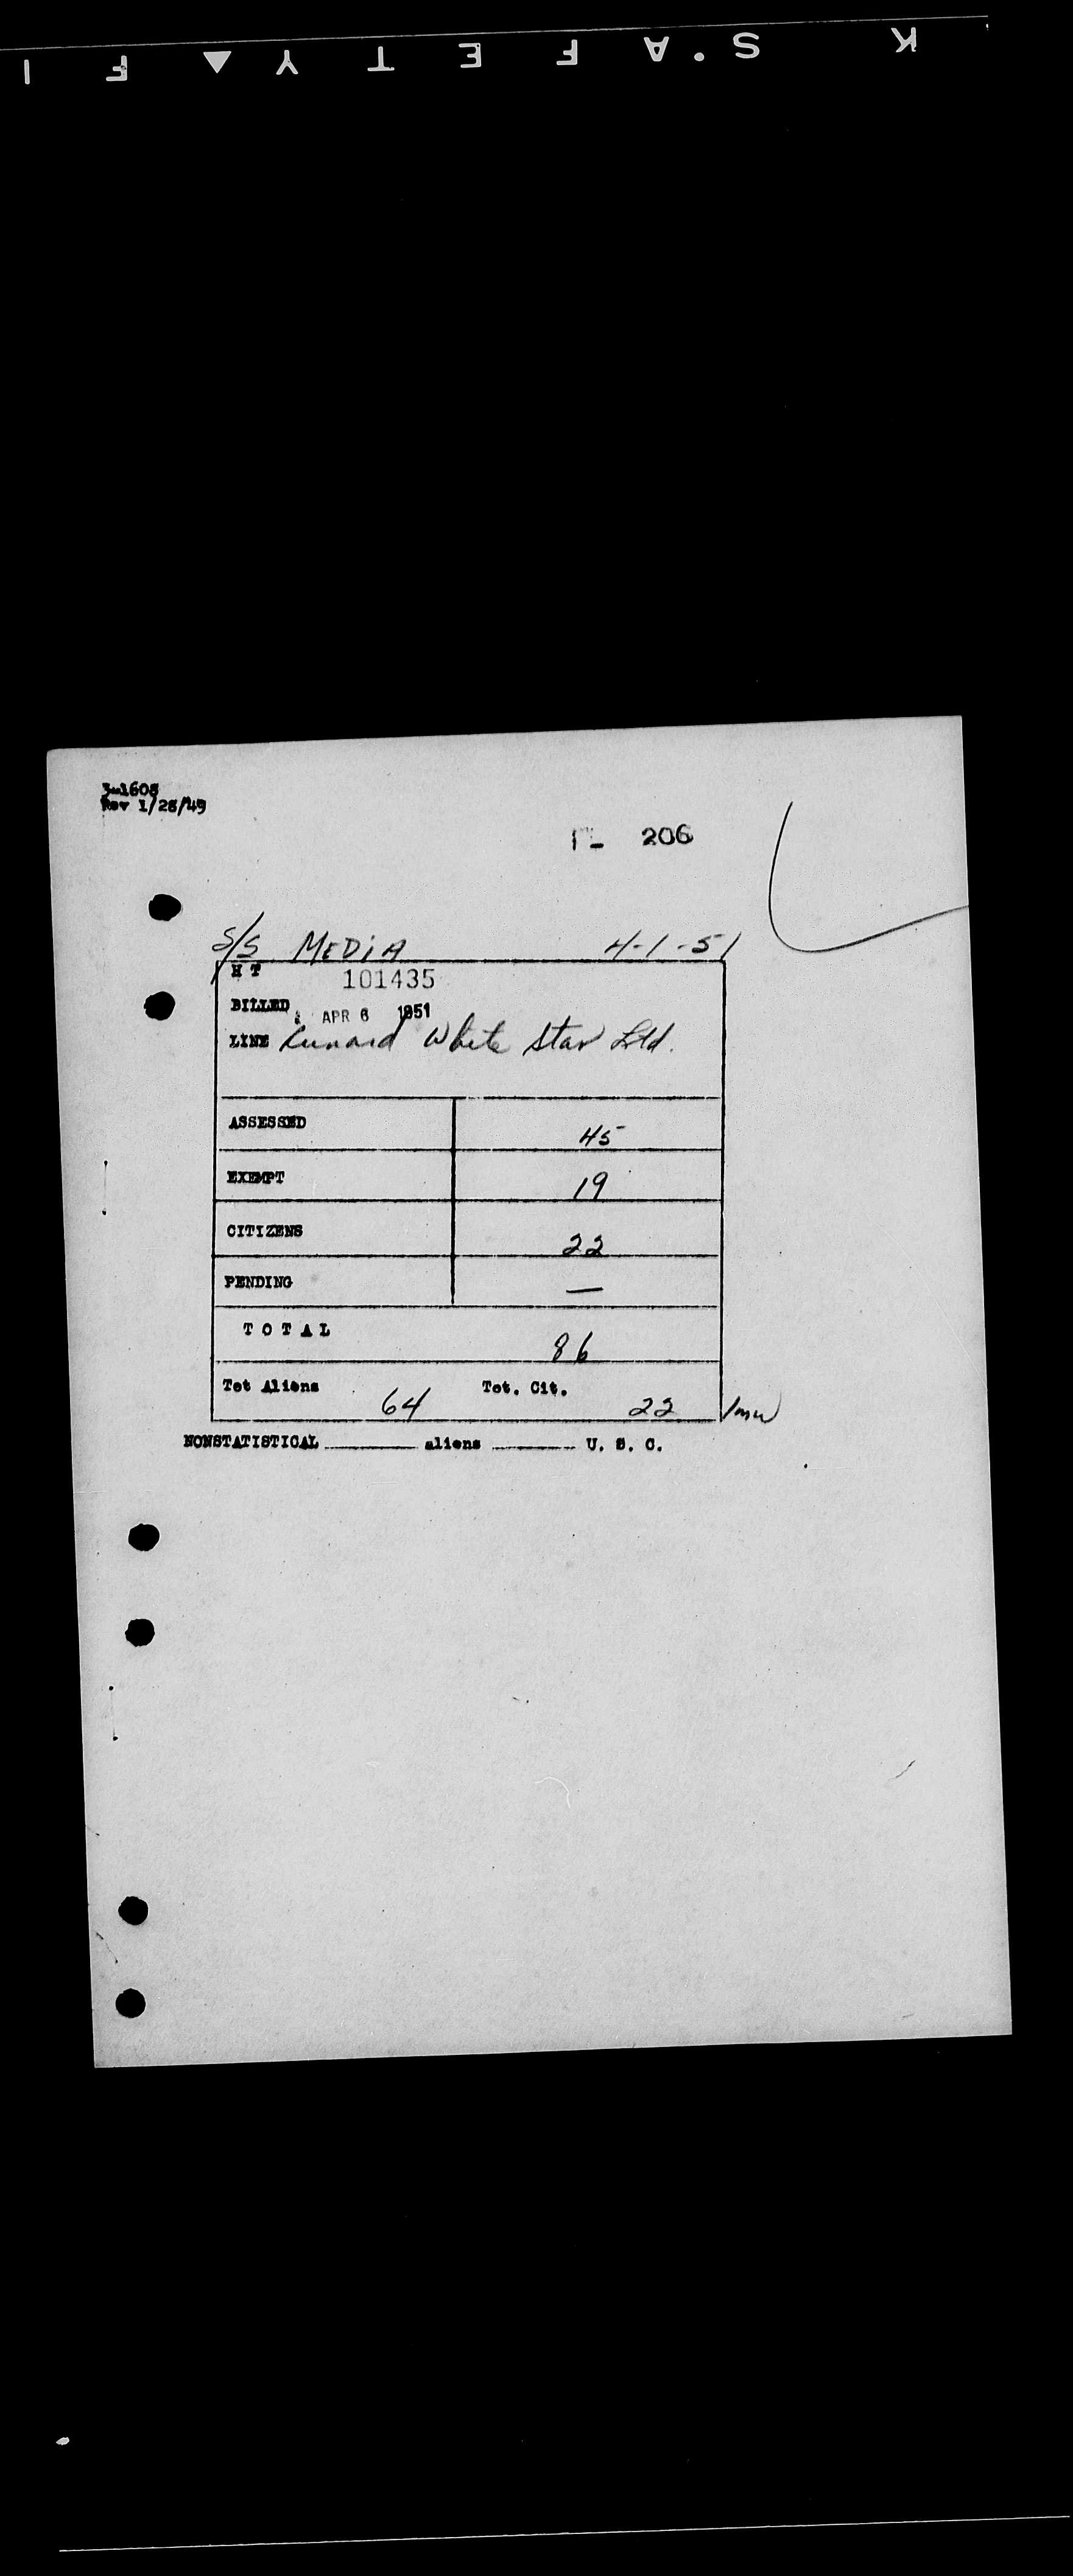 K S·A F E T Y ▲ F I
3-1608
Rev 1/28/49
206
S/S MEDIA 4-1-51
H T 101435
BILLED APR 6 1951
LINE Cunard White Star Ltd.
ASSESSED 45
EXEMPT 19
CITIZENS 22
PENDING —
TOTAL 86
Tot Aliens 64 Tot. Cit. 22
NONSTATISTICAL ______ aliens ______ U. S. C.